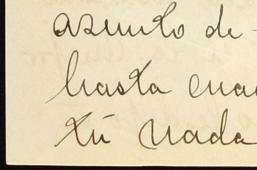 asunto de
hasta cua
tú nada